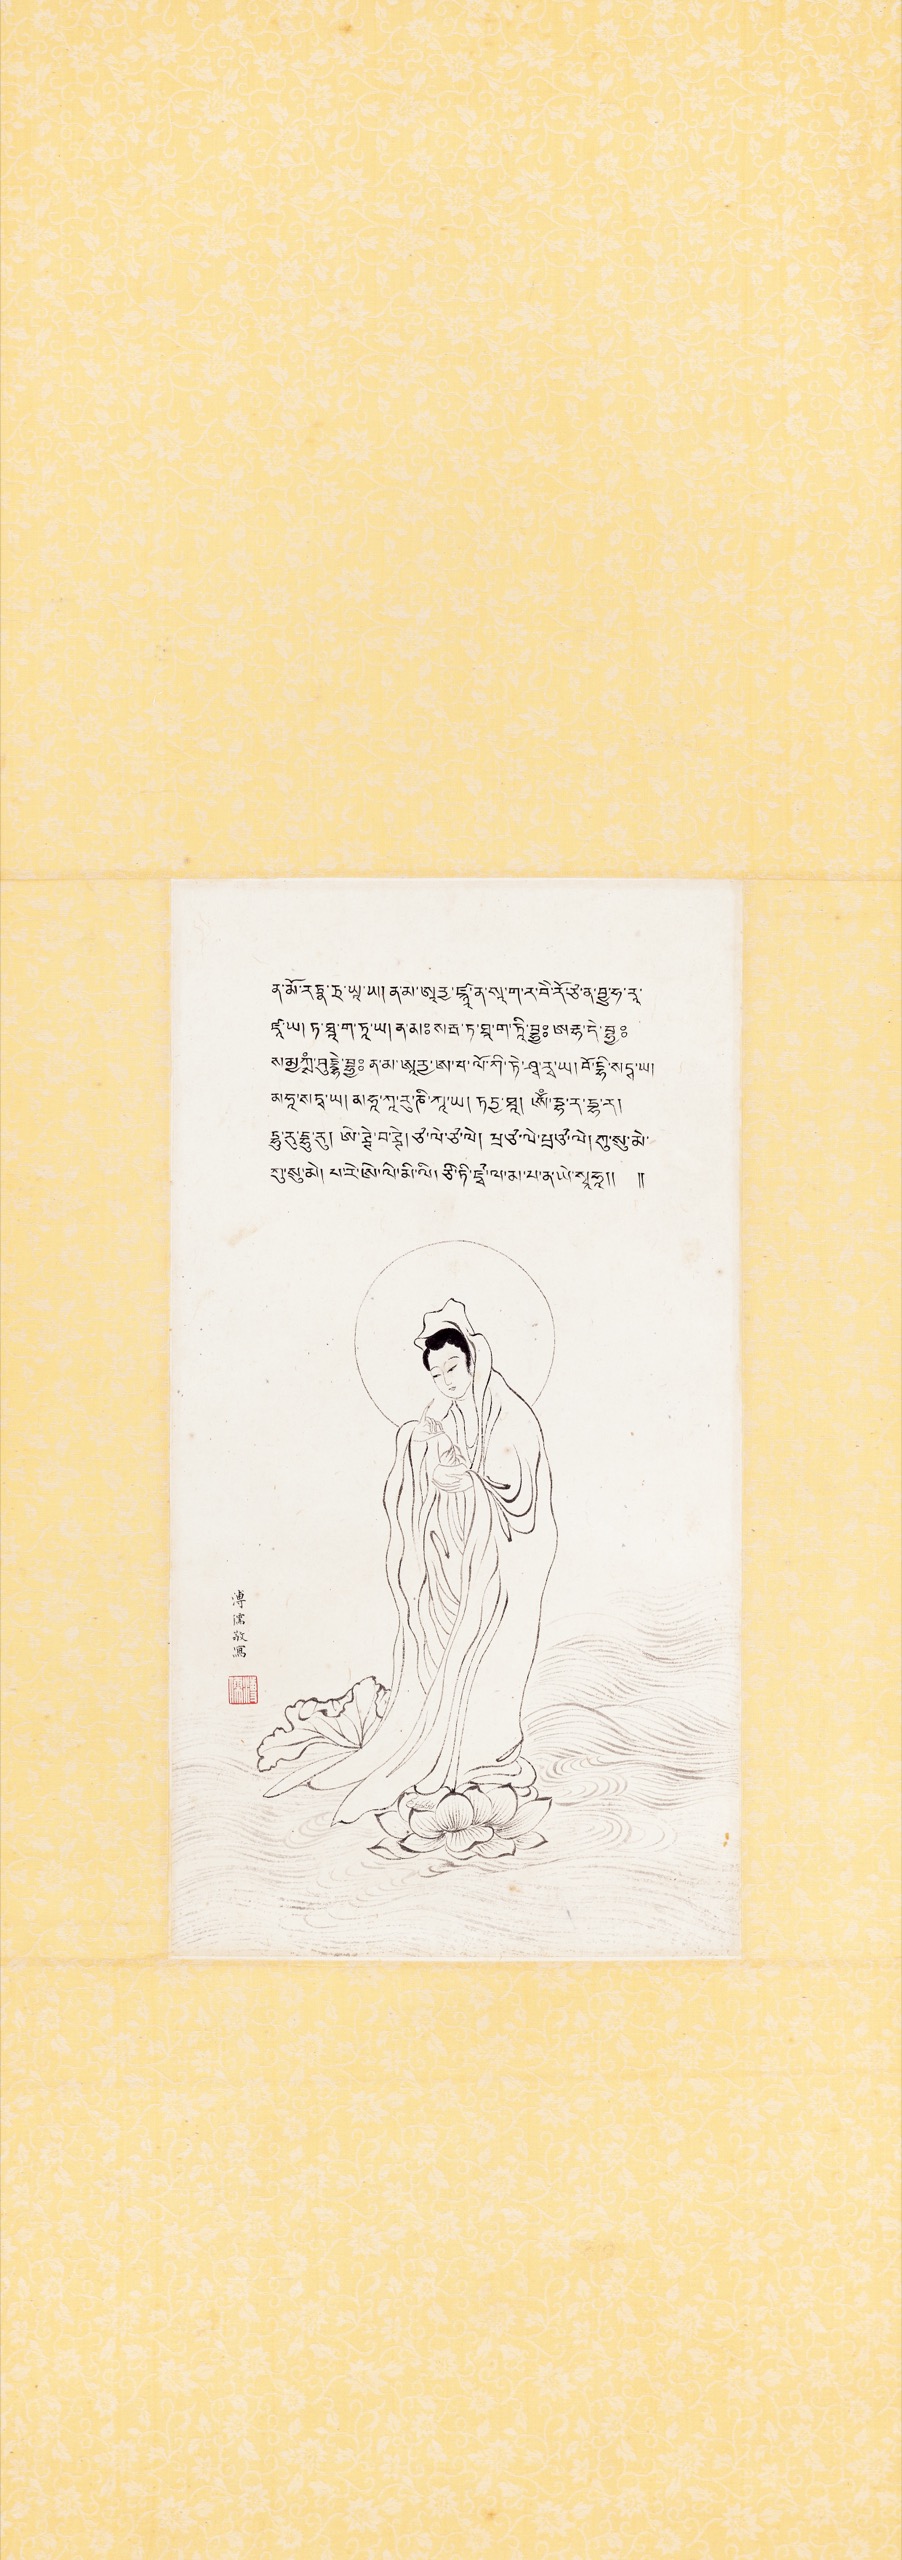 ན་མོ་རཏྣ་ཏྲ་ཡཱ་ཡ། ན་མ་ཨཱརྱ་ཛྙཱ་ན་སཱ་ག་ར་བཻ་རོ་ཙ་ན་བྱུ་ཧ་རཱ་
ཛཱ་ཡ། ཏ་ཐཱ་ག་ཏཱ་ཡ། ན་མཿ སརྦ་ཏ་ཐཱ་ག་ཏེ་བྷྱཿ ཨརྷ་ཏེ་བྷྱཿ
སམྱཀྶཾ་བུདྡྷེ་བྷྱཿ ན་མ་ཨཱརྱ་ཨ་བ་ལོ་ཀི་ཏེ་ཤྭ་རཱ་ཡ། བོ་དྷི་སཏྭ་ཡ།
མ་ཧཱ་སཏྭ་ཡ། མ་ཧཱ་ཀཱ་རུ་ཎི་ཀཱ་ཡ། ཏདྱ་ཐཱ། ཨོཾ་དྷ་ར་དྷ་ར།
དྷུ་རུ་དྷུ་རུ། ཨི་ཊྚེ་བ་ཊྚེ། ཙ་ལེ་ཙ་ལེ། པྲ་ཙ་ལེ་པྲ་ཙ་ལེ། ཀུ་སུ་མེ་
ཀུ་སུ་མེ། བ་རེ་ཨི་ལི་མི་ལི། ཙི་ཏི་ཛྭ་ལ་མ་པ་ན་ཡེ་སྭཱ་ཧཱ།། ༎
溥儒敬寫